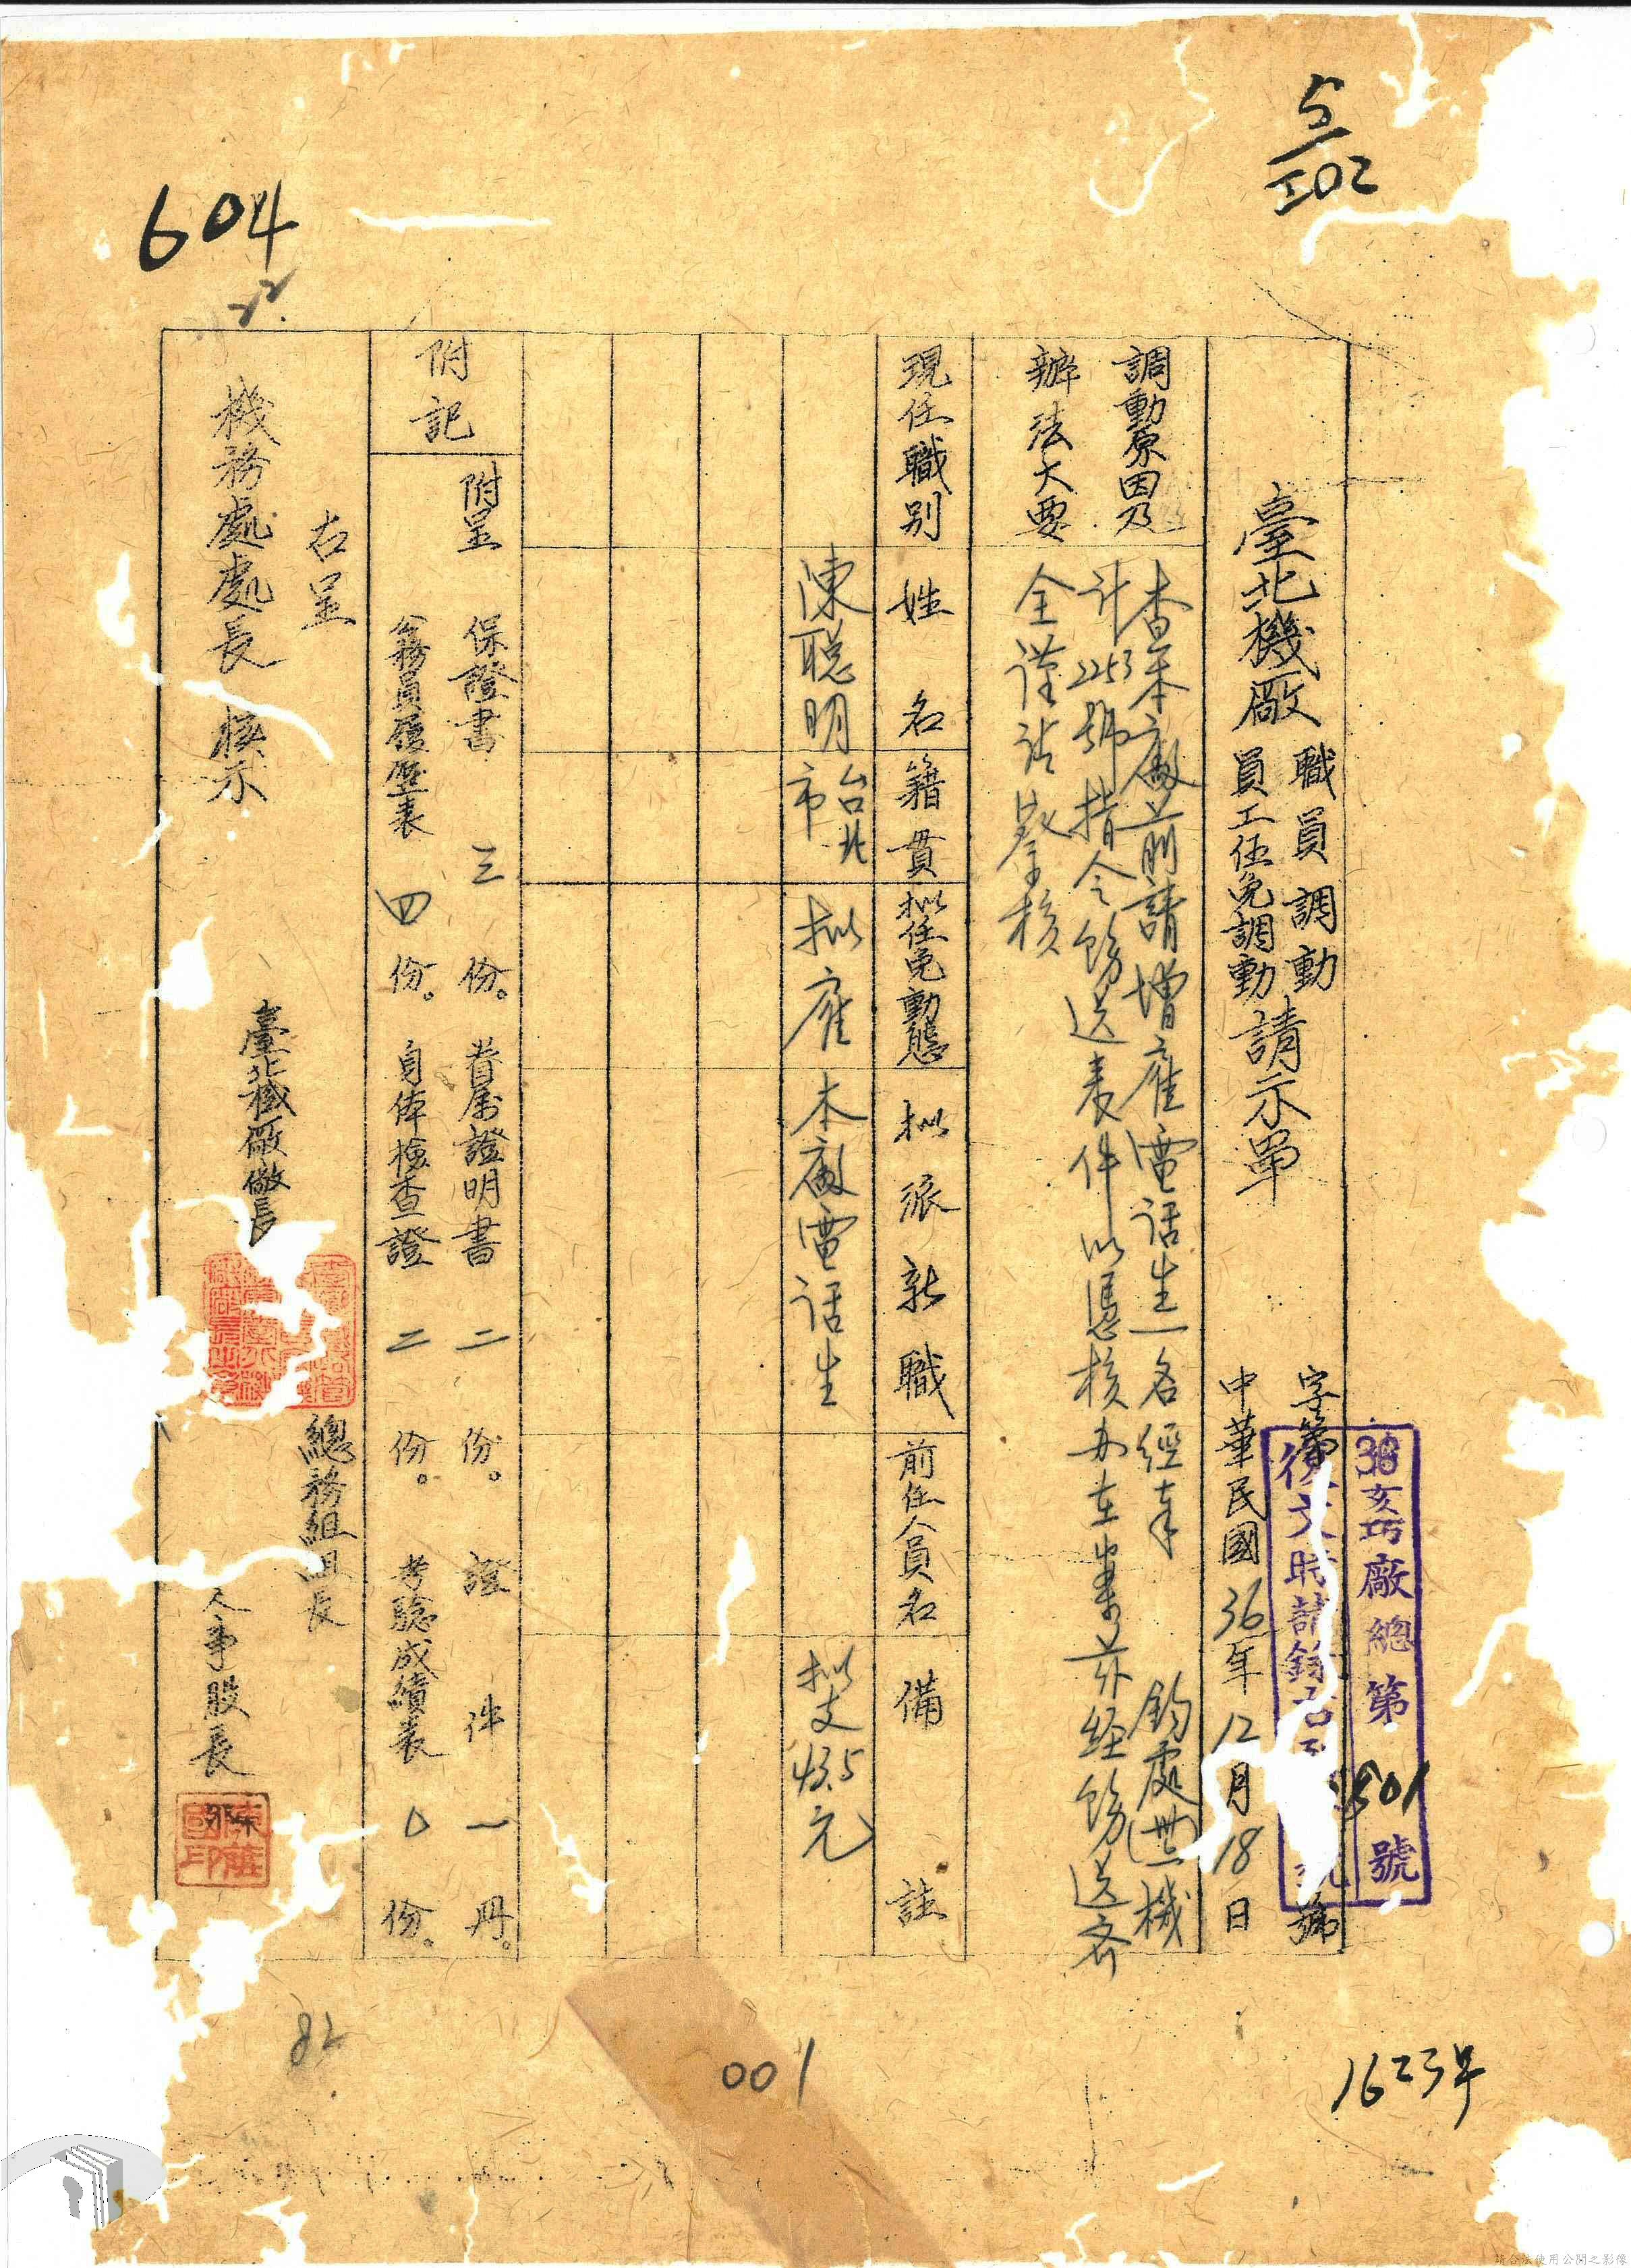 5/202
604
臺北機廠
職員調動
員工任免調動
請示單
字第 號
中華民國36年12月18日
36亥巧廠總第 501 號
復文時請
調動原因及
辦法大要
查本廠前請增雇電話生一名經奉
鈞處(卅六)機
計2253號指令飭送表件以憑核办在案茲經飭送齐
全謹請 詧核
現任職別
姓名
籍貫
拟任免動態
拟派新職
前任人員名
備註
陳聰明
台北
市
拟雇
本廠電話生
拟支43.5元
附記
附呈
保證書 三 份。
眷屬證明書 二 份。
證件 一 冊。
公務員履歷表 四 份。
身体檢查證 二 份。
考驗成績表 0 份。
右呈
機務處處長 核示
臺北機廠廠長
總務組組長
人事股長
82
001
1623号
請合法使用公開之影像